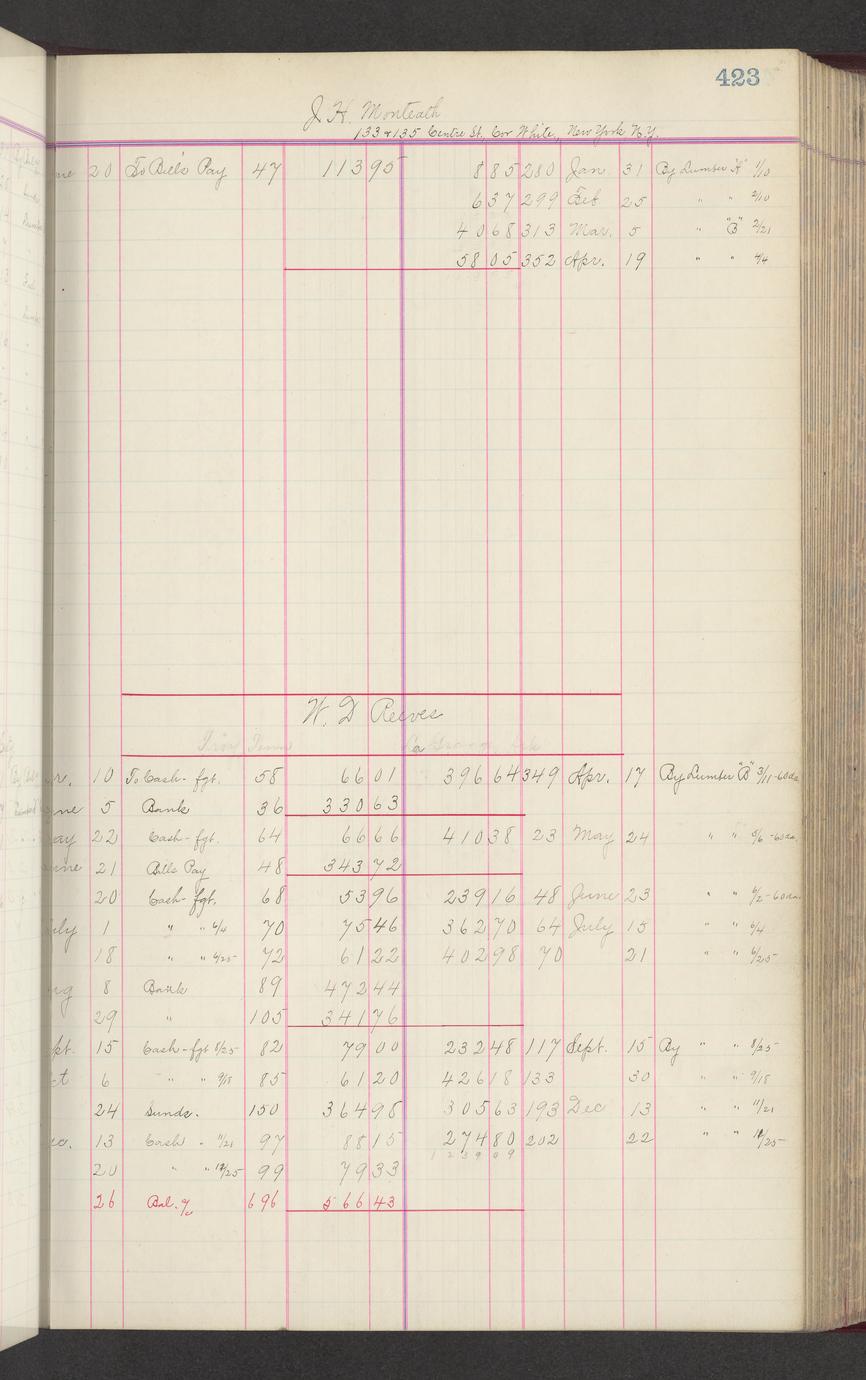 423
J. H. Monteath
133 & 135 Centre St., Cor White, New York N.Y.
ne 20 To Bills Pay 47 113 95 8 85 280 Jan 31 By Lumber "A" 1/10
6 37 299 Feb 25 " " 2/10
40 68 313 Mar. 5 " "B" 2/21
58 05 352 Apr. 19 " " 4/4
W. D Reeves
r. 10 To Cash - fgt. 58 66 01 396 64 349 Apr. 17 By Lumber "B" 3/11 - 60 da
ne 5 Bank 36 330 63
ay 22 Cash - fgt. 64 66 66 410 38 23 May 24 " " 5/6 - 60 da.
une 21 Bills Pay 48 343 72
20 Cash - fgt. 68 53 96 239 16 48 June 23 " " 6/2 - 60 da.
uly 1 " " 6/4 70 75 46 362 70 64 July 15 " " 6/4
18 " " 6/25 72 61 22 402 98 70 21 " " 6/25
ug 8 Bank 89 472 44
29 " 105 341 76
pt. 15 Cash - fgt 8/25 82 79 00 232 48 117 Sept. 15 By " " 8/25
ct 6 " " 9/18 85 61 20 426 18 133 30 " " 9/18
24 Sunds. 150 364 98 305 63 193 Dec 13 " " 11/21
ec. 13 Cash " 11/21 97 88 15 274 80 202 22 " " 10/25
1 2 3 9 0 9
20 " " 10/25 99 79 33
26 Bal. a/c 696 566 43